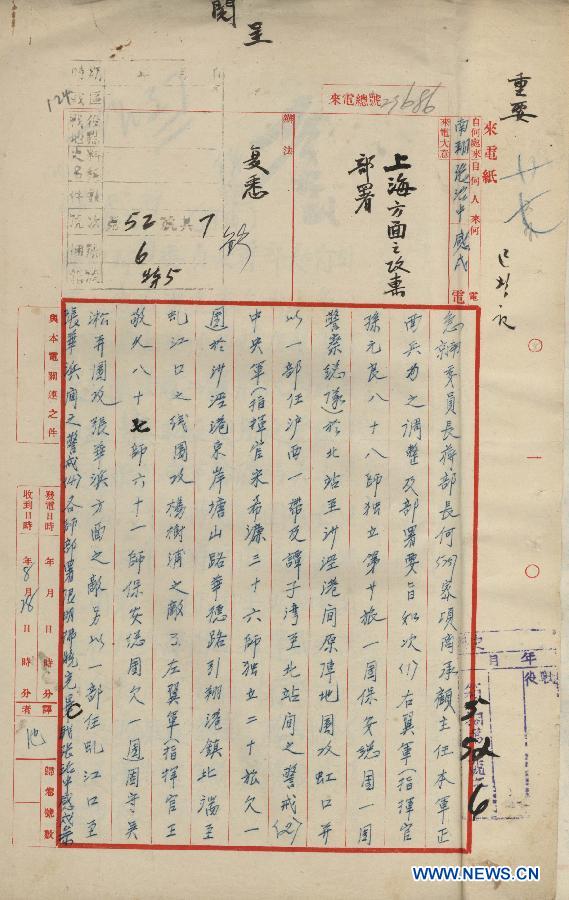 閱
呈
重要
來電紙
來電總號 23686
自何處來自何人來何
南翔張治中感戌
電
來電大意
上海方面之攻擊
部署
辦法
复悉
124
第52號其7
6
特5
急南京委員長蔣部長何(529)案項商承顧主任本軍正
面兵力之調整及部署要旨如次(1)右翼軍(指揮官
孫元良八十八師獨立第廿旅一團保安總團一團
警察總隊)於北站至沙涇港間原陣地圍攻虹口並
以一部任沪西一帶及譚子灣至北站間之警戒(2)
中央軍(指揮官宋希濂三十六師獨立二十旅欠一
團)於沙涇港東岸塘山路華德路引翔港鎮北端至
虬江口之线圍攻楊樹浦之敵(3)左翼軍(指揮官王
敬久八十七師六十一師保安總團欠一團)固守吳
淞并圍攻張華浜方面之敵另以一部任虬江口至
張華浜間之警戒(4)各師部署限明拂曉完畢職張治中感戌叅
與本電關連之件
發電日時
年
月
日
時
分
收到日時
年8月28日
時
分
譯者
池
歸檔號數
年
月
5
52
6
WWW.NEWS.CN
WWW.NEWS.CN